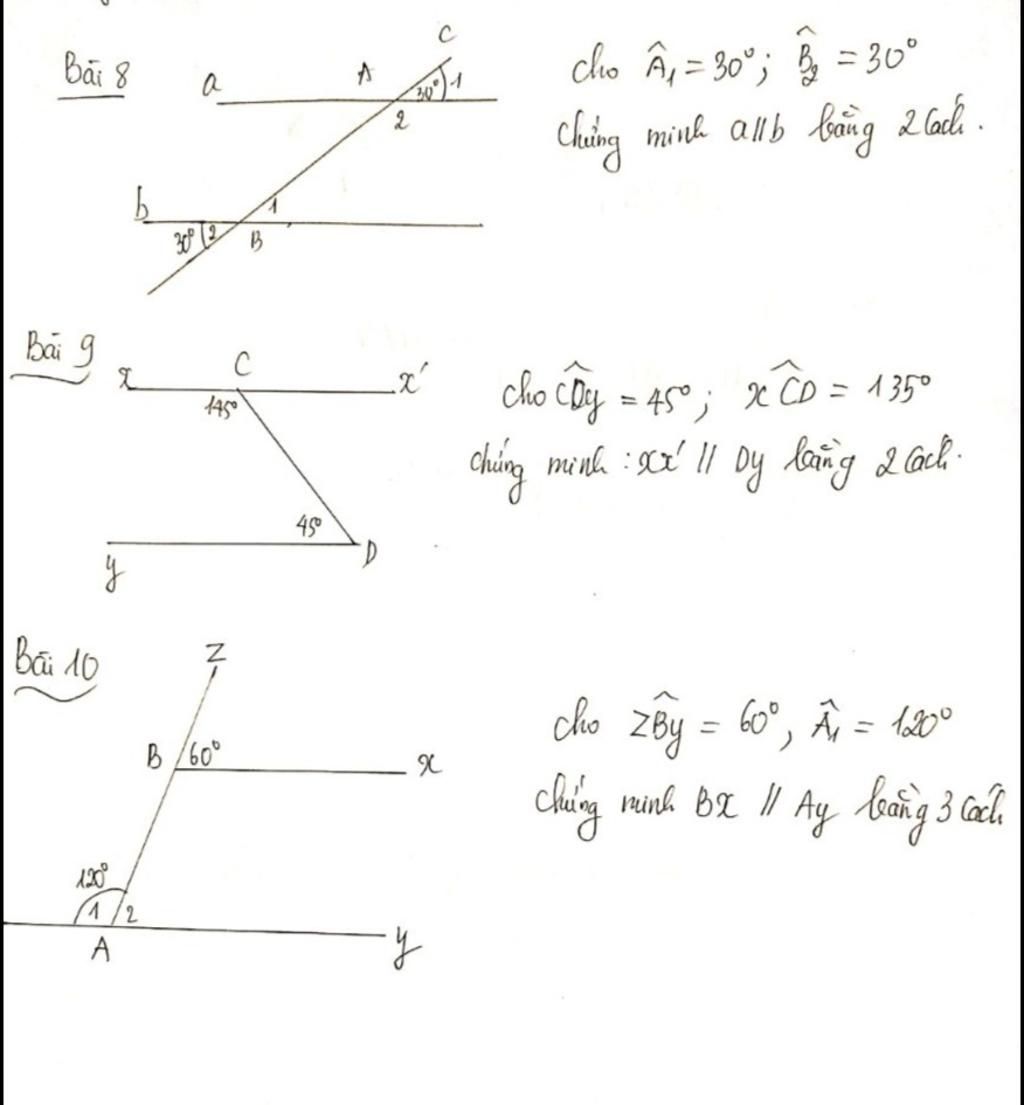 Bài 8
a
A
C
30° 1
2
b
1
30° 2
B
cho Â₁ = 30°; B̂₂ = 30°
Chứng minh a//b bằng 2 Cách.
Bài 9
x
C
x'
145°
45°
y
D
cho CDy = 45°; xCD = 135°
chứng minh : xx' // Dy bằng 2 Cách.
Bài 10
z
B 60°
x
120°
1 2
A
y
cho zBy = 60°, Â₁ = 120°
chứng minh Bx // Ay bằng 3 Cách